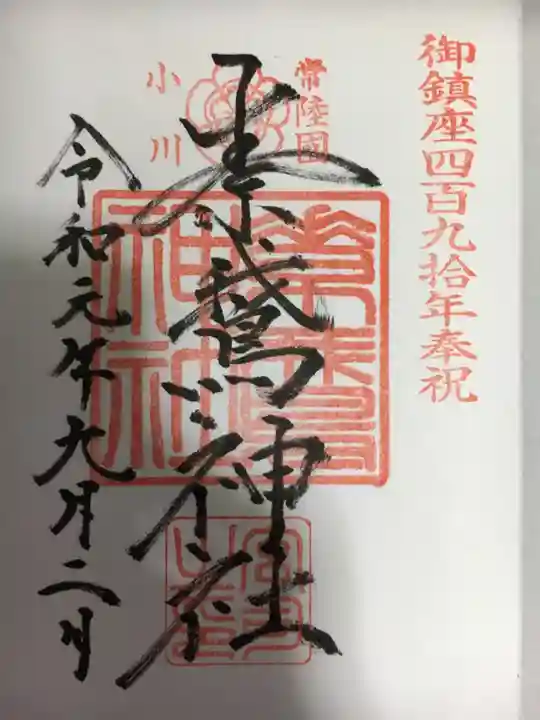 御鎮座四百九拾年奉祝
常陸國
小川
素鵞神社
素鵞
神社
令和元年九月二日